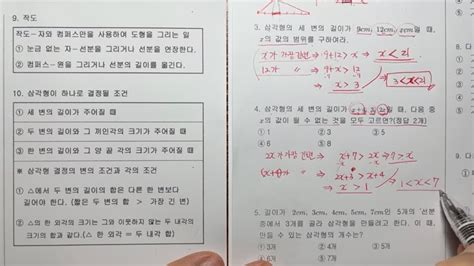 9. 작도
작도-자와 컴퍼스만을 사용하여 도형을 그리는 일
① 눈금 없는 자-선분을 그리거나 선분을 연장한다.
② 컴퍼스-원을 그리거나 선분의 길이를 옮긴다.
10. 삼각형이 하나로 결정될 조건
① 세 변의 길이가 주어질 때
② 두 변의 길이와 그 끼인각의 크기가 주어질 때
③ 한 변의 길이와 그 양 끝각의 크기가 주어질 때
※ 삼각형 결정의 변의 조건과 각의 조건
① △에서 두 변의 길이의 합은 다른 한 변보다
길어야 한다. (짧은 두 변의 합 > 가장 긴 변)
② △의 한 외각의 크기는 그와 이웃하지 않는 두 내각
의 크기의 합과 같다. (△의 한 외각=두 내각의 합)
3. 삼각형의 세 변의 길이가 9cm, 12cm, xcm일 때,
x의 값의 범위를 구하여라.
x가 가장 긴변 → 9+12>x ⇒ x<21
12가 〃 → 9+x>12
⇒ x>3
3<x<21
4. 삼각형의 세 변의 길이가 x+4, 3, 2x일 때, 다음 중
x의 값이 될 수 없는 것을 모두 고르면?(정답 2개)
① 1 ② 3 ③ 5
④ 7 ⑤ 8
2x가 가장긴변 → x+7>2x → 7>x
2x+3>x+4
⇒ x>1
1<x<7
5. 길이가 2cm, 3cm, 4cm, 5cm, 7cm인 5개의 선분
중에서 3개를 골라 삼각형을 만들려고 한다. 이 때,
만들 수 있는 삼각형의 개수는?
① 3개 ② 4개